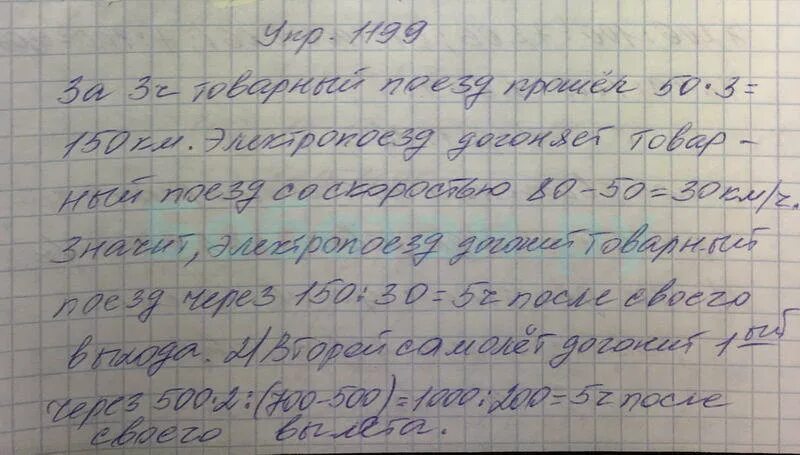 Упр. 1199
За 3ч товарный поезд прошёл 50·3=
150км. Электропоезд догоняет товар-
ный поезд со скоростью 80-50=30км/ч.
Значит, электропоезд догонит товарный
поезд через 150:30=5ч после своего
выхода. 2) Второй самолёт догонит 1ый
через 500·2:(700-500)=1000:200=5ч после
своего вылета.